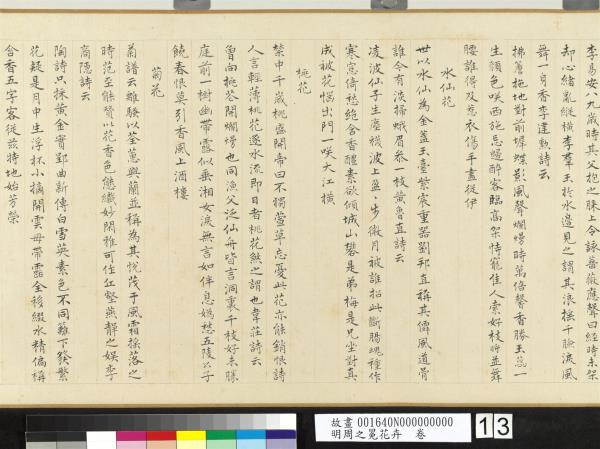 李易安八九歲時其父抱之膝上令詠薔薇應聲曰經時未架
却心緒亂縱横李羣玉於水邊見之謂其浪搖千臉淚風
舞一身香李建勳詩云
拂簷拖地對前墀蝶影風聲爛熳時萬倍馨香勝玉蕊一
生顏色咲西施忘歸醉客臨高架恃寵佳人索好枝將並舞
腰誰得及惹衣傷手盡從伊
水仙花
世以水仙為金盞玉臺繁宸重器劉邦直稱其僊風道骨
誰令有淡掃蛾眉參一枝黃魯直詩云
凌波仙子生塵襪波上盈步微月被誰招此斷腸魂種作
寒窓倚愁絕含香體素欲傾城山礬是弟梅是兄坐對真
成被花惱出門一咲大江橫
桃花
禁中千歲桃盛開帝曰不獨萱草忘憂此花亦能銷恨詩
人言輕薄桃花逐水流即日者桃花然之謂也韋莊詩云
曾向桃花開爛熳也同漁父泛仙舟皆言洞裏千枝好未勝
庭前一樹幽帶露似垂湘女淚無言如伴息媯愁五陵公子
饒春恨莫引香風上酒樓
菊花
菊譜云離騷以荃蕙與蘭並稱為其悅茂于風霜搖落之
時范至能贊以花香色態纖妙閑雅可住丘壑燕靜之娛李
商隱詩云
陶詩只採黃金實郢曲新傳白雪英素色不同籬下發繁
花疑是月中生浮杯小摘開雲母帶露全移綴水精偏稱
含香五字客從茲得地始芳榮
故畫 001640N000000000
明周之冕花卉 卷
13